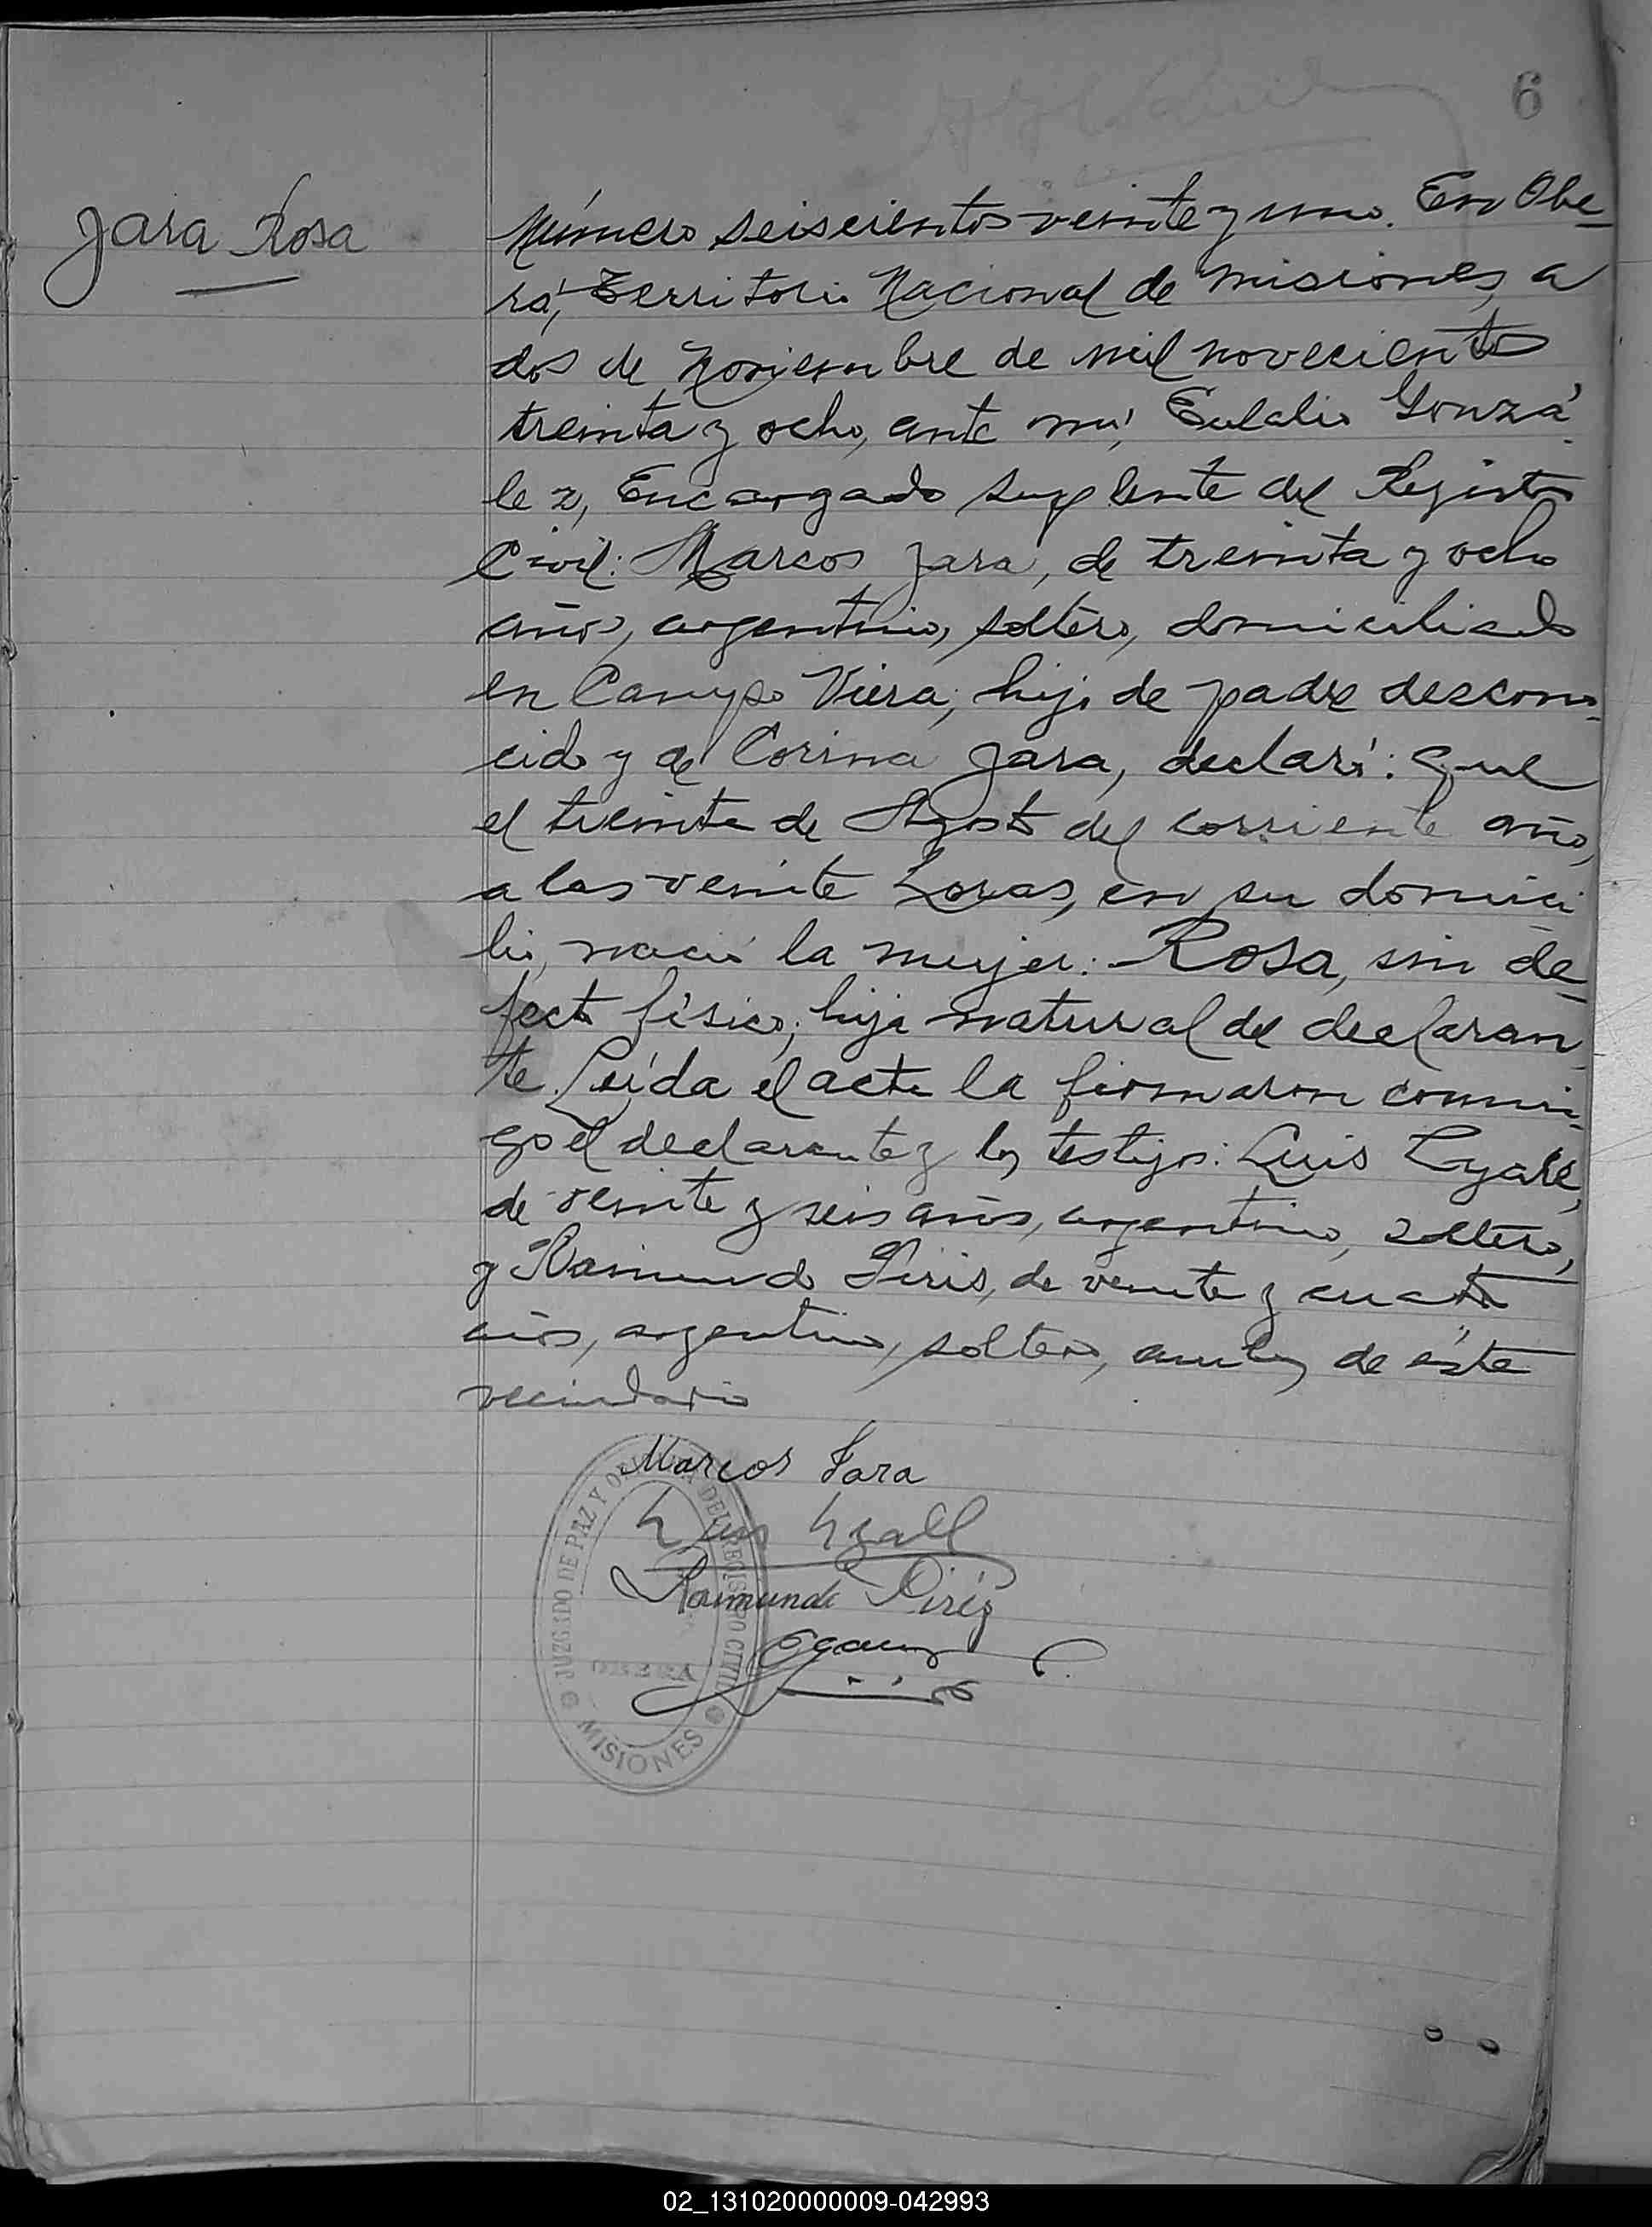 6
Jara Rosa
Número seiscientos veinte y uno. En Obe-
rá, Territorio Nacional de Misiones, a
dos de Noviembre de mil novecientos
treinta y ocho, ante mí, Eulalio Gonzá-
lez, Encargado suplente del Registro
Civil: Marcos Jara, de treinta y ocho
años, argentino, soltero, domiciliado
en Campo Viera, hijo de padre descono-
cido y de Corina Jara, declaró: que
el treinta de Agosto del corriente año,
a las veinte horas, en su domici-
lio, nació la mujer: Rosa, sin de-
fecto físico; hija natural del declaran-
te. Leída el acta la firmaron conmi-
go el declarante y los testigos: Luis Lyall,
de veinte y seis años, argentino, soltero,
y Raimundo Piris, de veinte y cuatro
años, argentino, soltero, ambos de éste
vecindario
Marcos Jara
Luis Lyall
Raimundo Piriz
JUZGADO DE PAZ Y OFICINA DEL REGISTRO CIVIL
OBERA
MISIONES
02_131020000009-042993